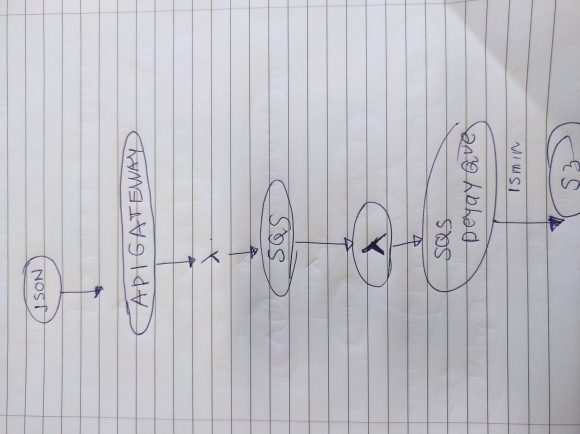 JSON
API GATEWAY
λ
SQS
λ
SQS
Deyay Que
15min
S3